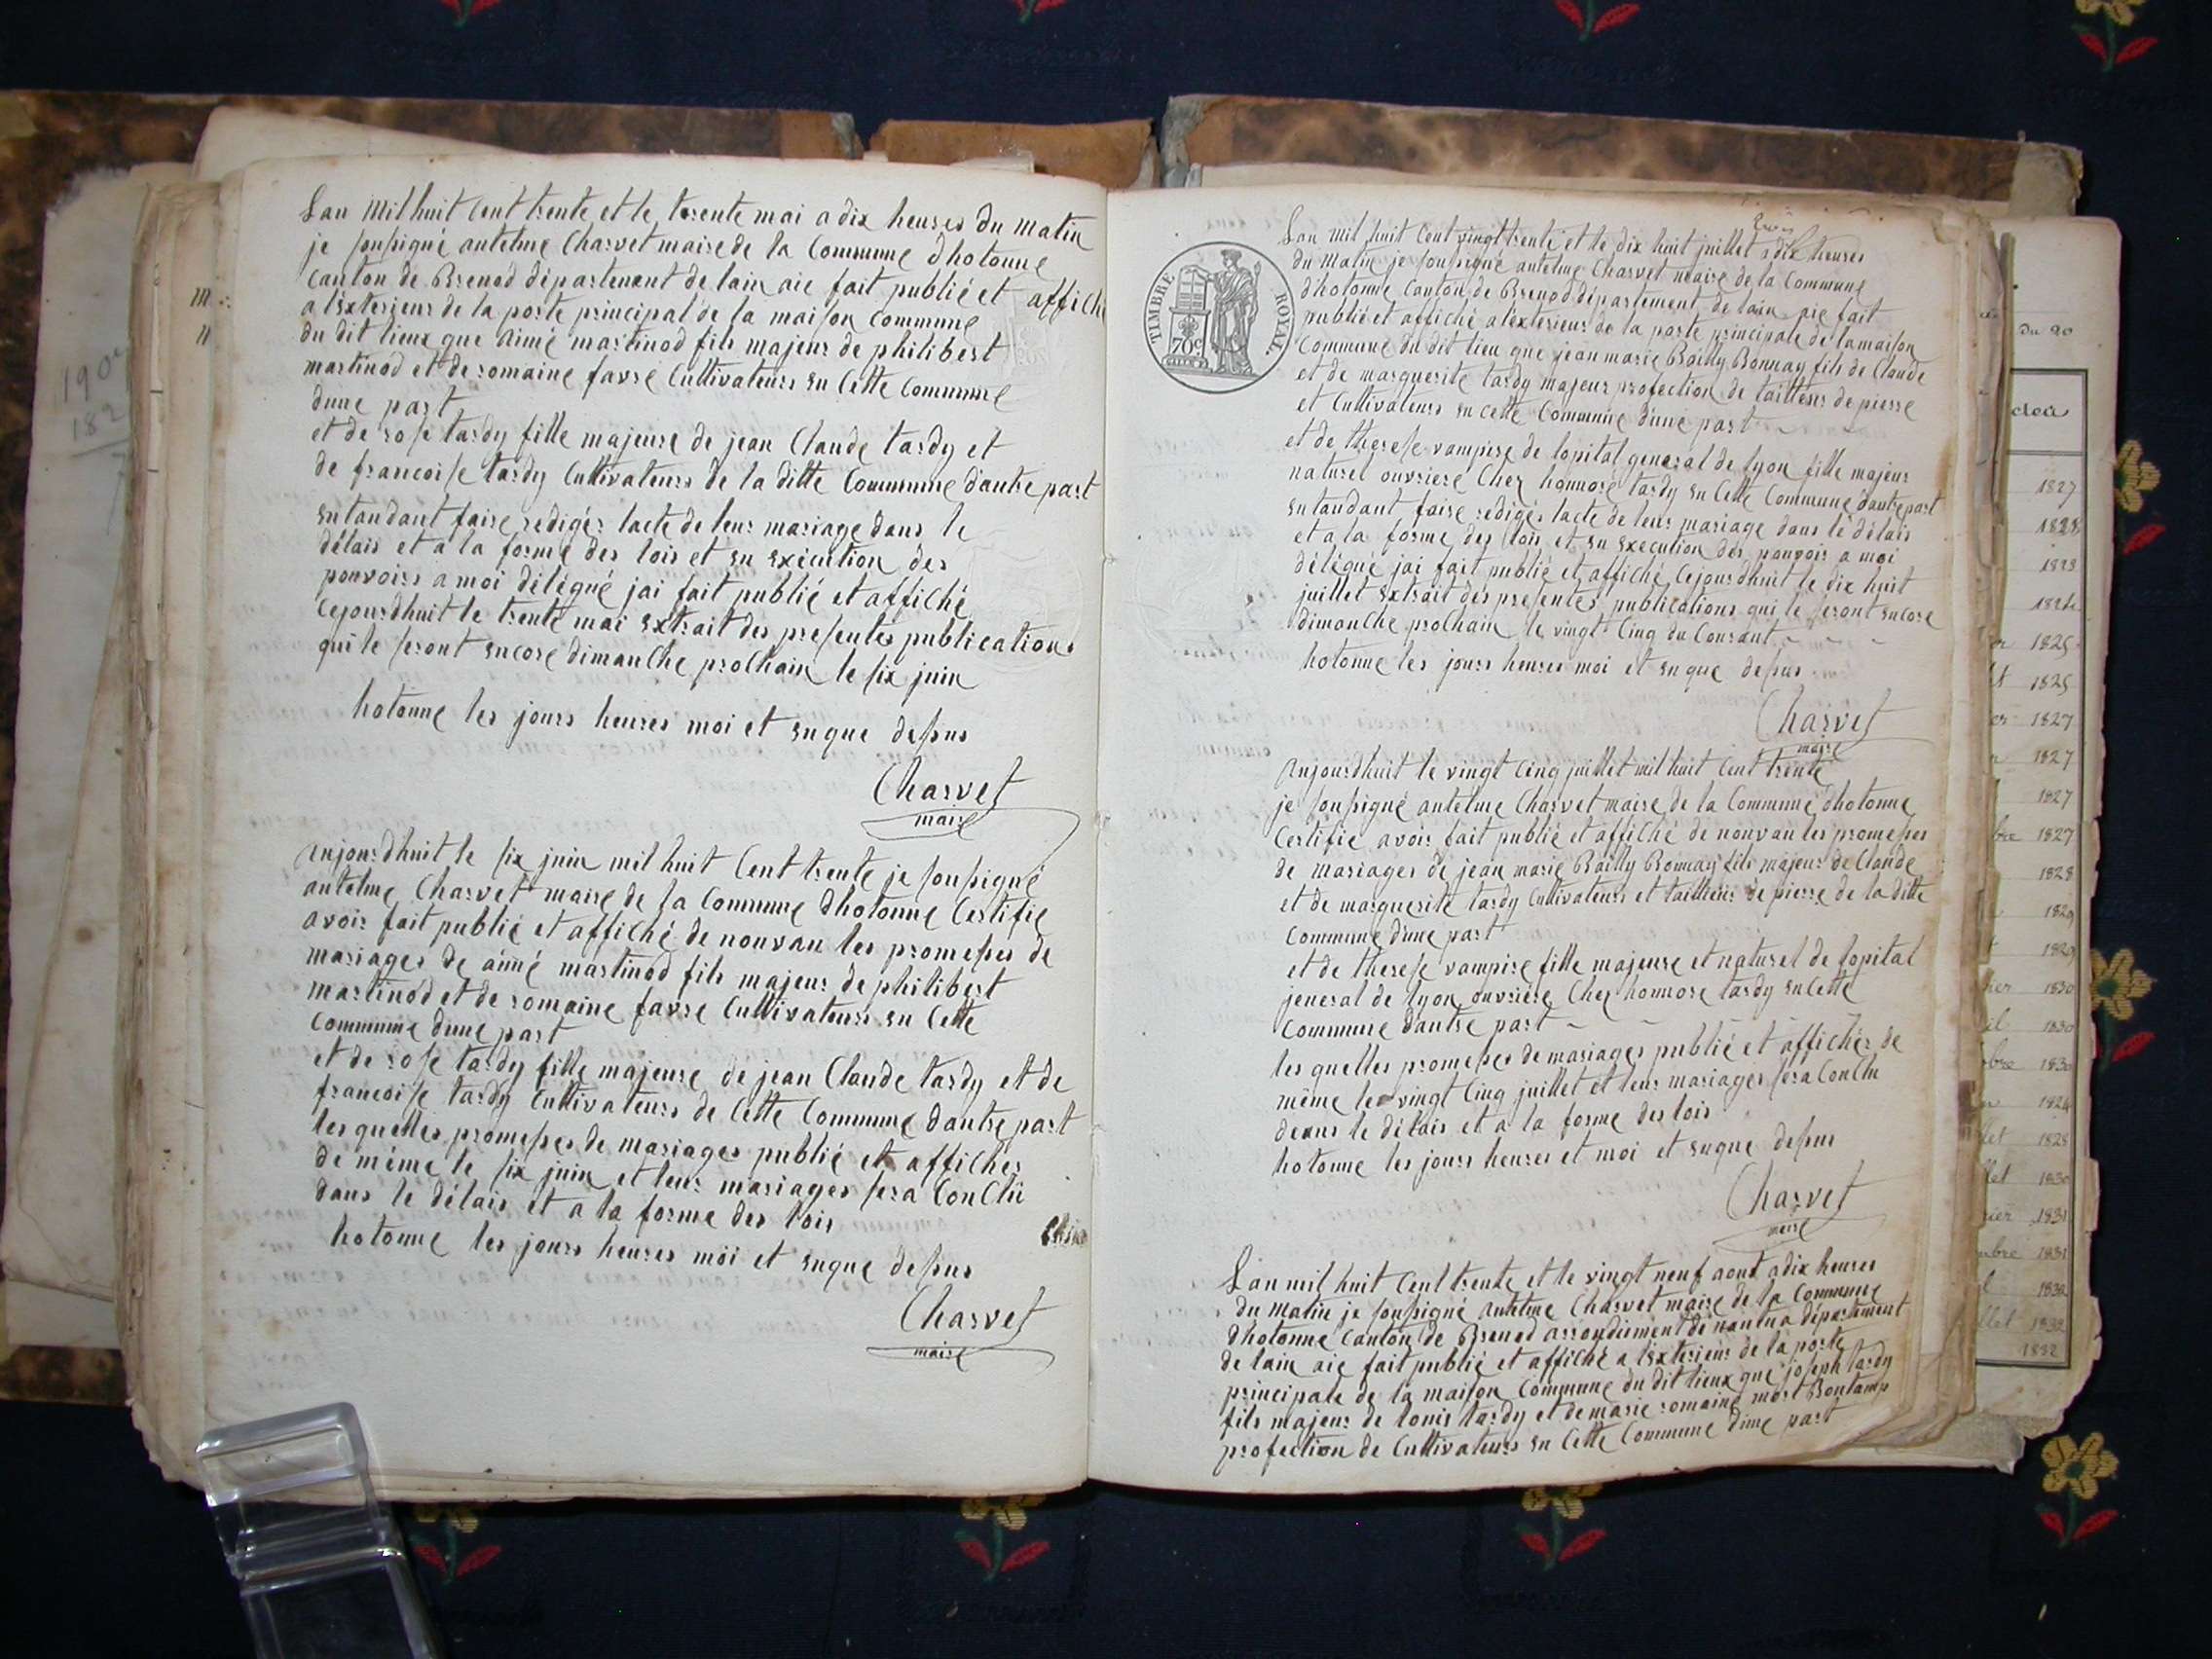 Lan mil huit Cent trente et le trente mai a dix heures du matin
je soussigné antelme Charvet maire de la Commune dhotonne
Canton de Brenod département de lain aie fait publié et affiché
a lexterieur de la porte principal de la maison Commune
du dit lieux que aimé martinod fils majeur de philibert
martinod et de romaine favre Cultivateurs en Cette Commune
dune part
et de rose tardy fille majeure de jean Claude tardy et
de francoise tardy Cultivateurs de la ditte Commune dautre part
entandant faire rediger lacte de leur mariage dans le
délais et a la forme des lois et en exécution des
pouvoirs a moi délégué jai fait publié et affiché
Cejourdhuit le trente mai extrait des presentes publications
qui le seront encore dimanche prochain le six juin
hotonne les jours heures moi et en que dessus
Charvet
maire
aujourdhuit le six juin mil huit Cent trente je soussigné
antelme Charvet maire de la Commune dhotonne Certifie
avoir fait publié et affiché de nouvau les promesses de
mariages de aimé martinod fils majeur de philibert
martinod et de romaine favre Cultivateurs en Cette
Commune dune part
et de rose tardy fille majeure de jean Claude tardy et de
francoise tardy Cultivateurs de Cette Commune dautre part
les quelles promesses de mariages publié et affiches
de même le six juin et leur mariages sera Conclu
dans le délais et a la forme des lois
hotonne les jours heures moi et en que dessus
Charvet
maire
TIMBRE ROYAL.
70c
Lan mil huit Cent vingt trente et le dix huit juillet a dix heures
du matin je soussigné antelme Charvet maire de la Commune
dhotonne Canton de Brenod département de lain aie fait
publié et affiché a lexterieur de la porte principale de lamaison
Commune du dit lieu que jean marie Bailly Bonnay fils de Claude
et de marguerite tardy majeur profection de tailleur de pierre
et Cultivateurs en Cette Commune dune part
et de therese vampire de lopital general de lyon fille majeur
naturel ouvriere Chez honnoré tardy en Cette Commune dautre part
entandant faire rediger lacte de leur mariage dans le délais
et a la forme des lois et en execution des pouvoir a moi
délégué jai fait publié et affiché Cejourdhuit le dix huit
juillet extrait des presentes publications qui le seront encore
dimanche prochain le vingt Cinq du Courant
hotonne les jours heures moi et en que dessus
Charvet
maire
aujourdhuit le vingt Cinq juillet mil huit Cent trente
je soussigné antelme Charvet maire de la Commune dhotonne
Certifie avoir fait publié et affiché de nouvau les promesses
de mariages de jean marie Bailly Bonnay fils majeur de Claude
et de marguerite tardy Cultivateurs et tailleur de pierre de la ditte
Commune dune part
et de therese vampire fille majeure et naturel de lopital
jeneral de lyon ouvriere Chez honnore tardy en Cette
Commune dautre part
les quelles promesses de mariages publié et affichés de
même le vingt Cinq juillet et leur mariages sera Conclu
deans le délais et a la forme des lois
hotonne les jours heures et moi et en que dessus
Charvet
maire
Lan mil huit Cent trente et le vingt neuf aout a dix heures
du matin je soussigné antelme Charvet maire de la Commune
dhotonne Canton de Brenod arrondiment de nantua département
de lain aie fait publié et affiché a lexterieur de la porte
principale de la maison Commune du dit lieux que joseph tardy
fils majeur de louis tardy et de marie romaine mort Bontamp
profection de Cultivateurs en Cette Commune dune part
du 20
1827
1828
1828
1824
1825
1825
1827
1827
1827
bre 1827
1828
1829
1829
1830
1830
obre 1830
1824
let 1828
let 1830
rier 1831
mbre 1831
1832
llet 1832
1832